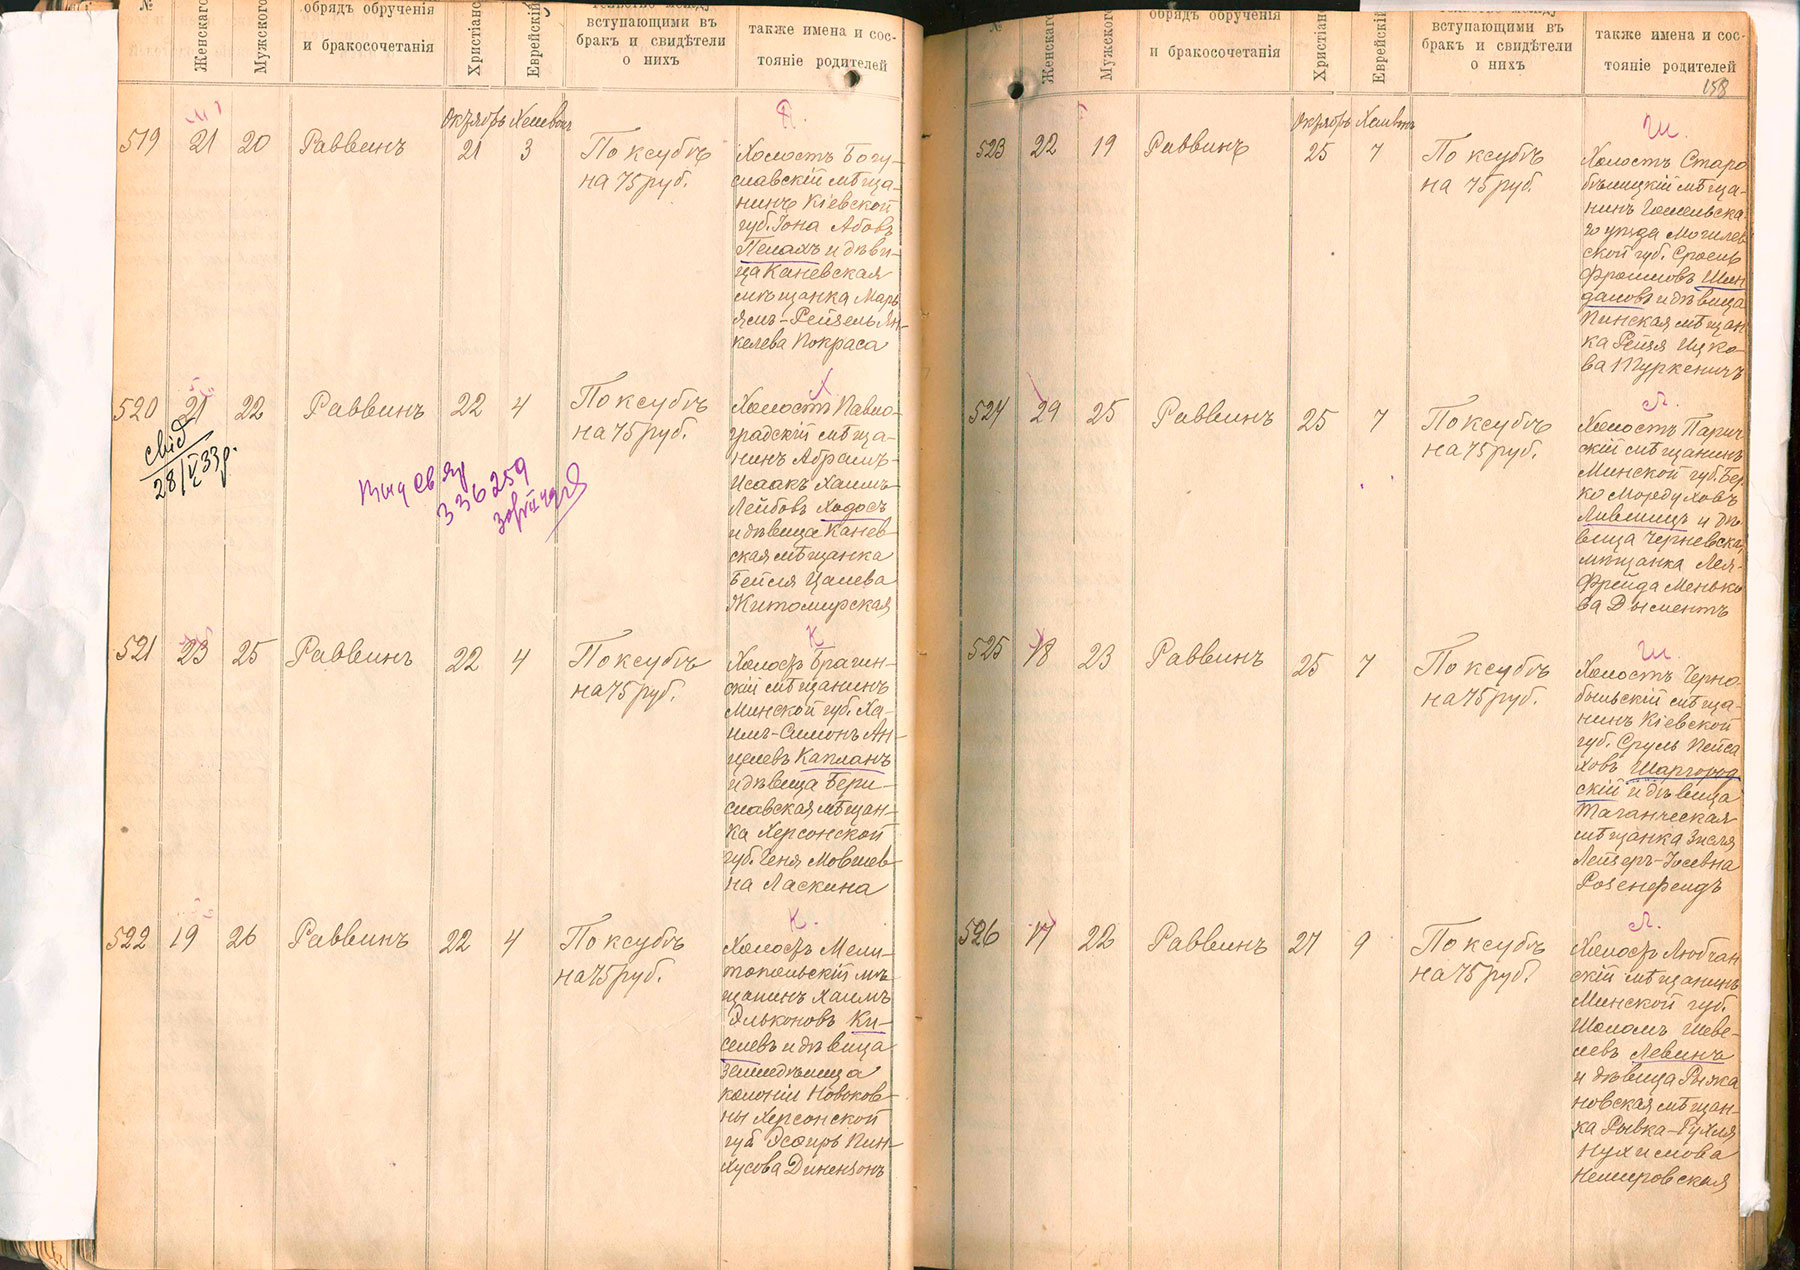 №
Женскаго
Мужского
обрядъ обрученія
и бракосочетанія
Христіанс
Еврейскій
вступающими въ
бракъ и свидѣтели
о нихъ
также имена и сос-
тояніе родителей
Октябрь Хешвонъ
519 21 20 Раввинъ 21 3 По ксубѣ
на 75 руб.
Холостъ Богу-
славскій мѣща-
нинъ Кіевской
губ. Іона Абовъ
Пелахъ и дѣви-
ца Каневская
мѣщанка Марь
ямъ-Рейзель Ян-
келева Покраса
520 21 22 Раввинъ 22 4 По ксубѣ
на 75 руб.
свід
28/V 33 р.
336259
Х
Холостъ Павло-
градскій мѣща-
нинъ Абрамъ-
Исаакъ Хаимъ-
Лейбовъ Ходосъ
и дѣвица Канев-
ская мѣщанка
Бейля Цалева
Житомирская
521 23 25 Раввинъ 22 4 По ксубѣ
на 75 руб.
К
Холостъ Брагин-
скій мѣщанинъ
Минской губ. Ха-
имъ-Симонъ Ан-
целевъ Капланъ
и дѣвица Бери-
славская мѣщан-
ка Херсонской
губ. Геня Мовшев-
на Ласкина
522 19 26 Раввинъ 22 4 По ксубѣ
на 75 руб.
К.
Холостъ Мели-
топольскій мѣ-
щанинъ Хаимъ
Эльконовъ Ки-
селевъ и дѣвица
земледѣлица
колоніи Новоков-
ны Херсонской
губ Эсфирь Пин-
хусова Динензонъ
№
Женскаго
Мужского
обрядъ обрученія
и бракосочетанія
Христіан
Еврейскій
вступающими въ
бракъ и свидѣтели
о нихъ
также имена и сос-
тояніе родителей
158
Октябрь Хешвонъ
523 22 19 Раввинъ 25 7 По ксубѣ
на 75 руб.
Ш.
Холостъ Старо
бѣлицкій мѣща-
нинъ Гомельска
го уѣзда Могилев
ской губ. Сроель
Фроимовъ Шен
даловъ и дѣвица
Пинская мѣщан
ка Рейзя Ицко-
ва Туркеничъ
524 29 25 Раввинъ 25 7 По ксубѣ
на 75 руб.
Л.
Холостъ Парич
скій мѣщанинъ
Минской губ. Бер
ко Мордуховъ
Лившицъ и дѣ
вица Черневская
мѣщанка Лея-
Фрейда Менько
ва Дыментъ
525 18 23 Раввинъ 25 7 По ксубѣ
на 75 руб.
Ш.
Холостъ Черно
быльскій мѣща-
нинъ Кіевской
губ. Сруль Пейса
ховъ Шаргород
скій и дѣвица
Таганческая
мѣщанка Зисля
Лейзеръ-Іосевна
Розенфельдъ
526 17 22 Раввинъ 27 9 По ксубѣ
на 75 руб.
Л.
Холостъ Любчан
скій мѣщанинъ
Минской губ.
Шоломъ Шеве-
левъ Левинъ
и дѣвица Рыжа
новская мѣщан-
ка Рывка-Рухля
Нухимова
Немировская